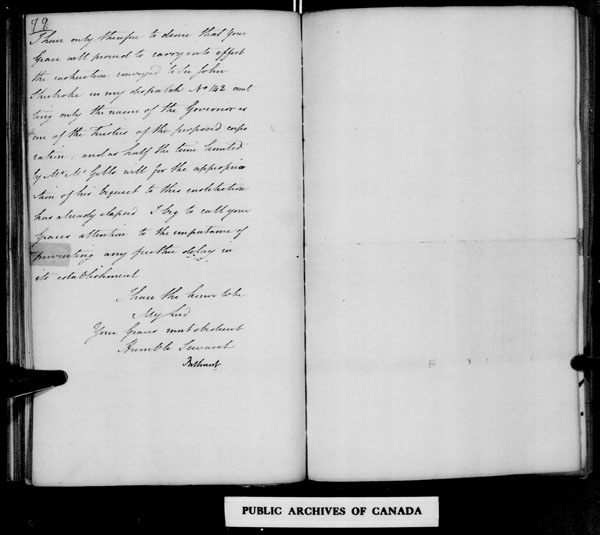 79
I have only therefore to desire that your
Grace will proceed to carry into effect
the instruction conveyed to Sir John
Sherbroke in my dispatch No 142 omit
ting only the name of the Governor as
one of the Trustees of the proposed corpo
ration; and as half the time limited
by Mr Mc Gills will for the appropria
tion of his bequest to this institution
has already elapsed I beg to call your
Graces attention to the importance of
preventing any further delay in
its establishment
I have the honor to be
My Lord
Your Graces most obedient
Humble Servant
Bathurst
PUBLIC ARCHIVES OF CANADA